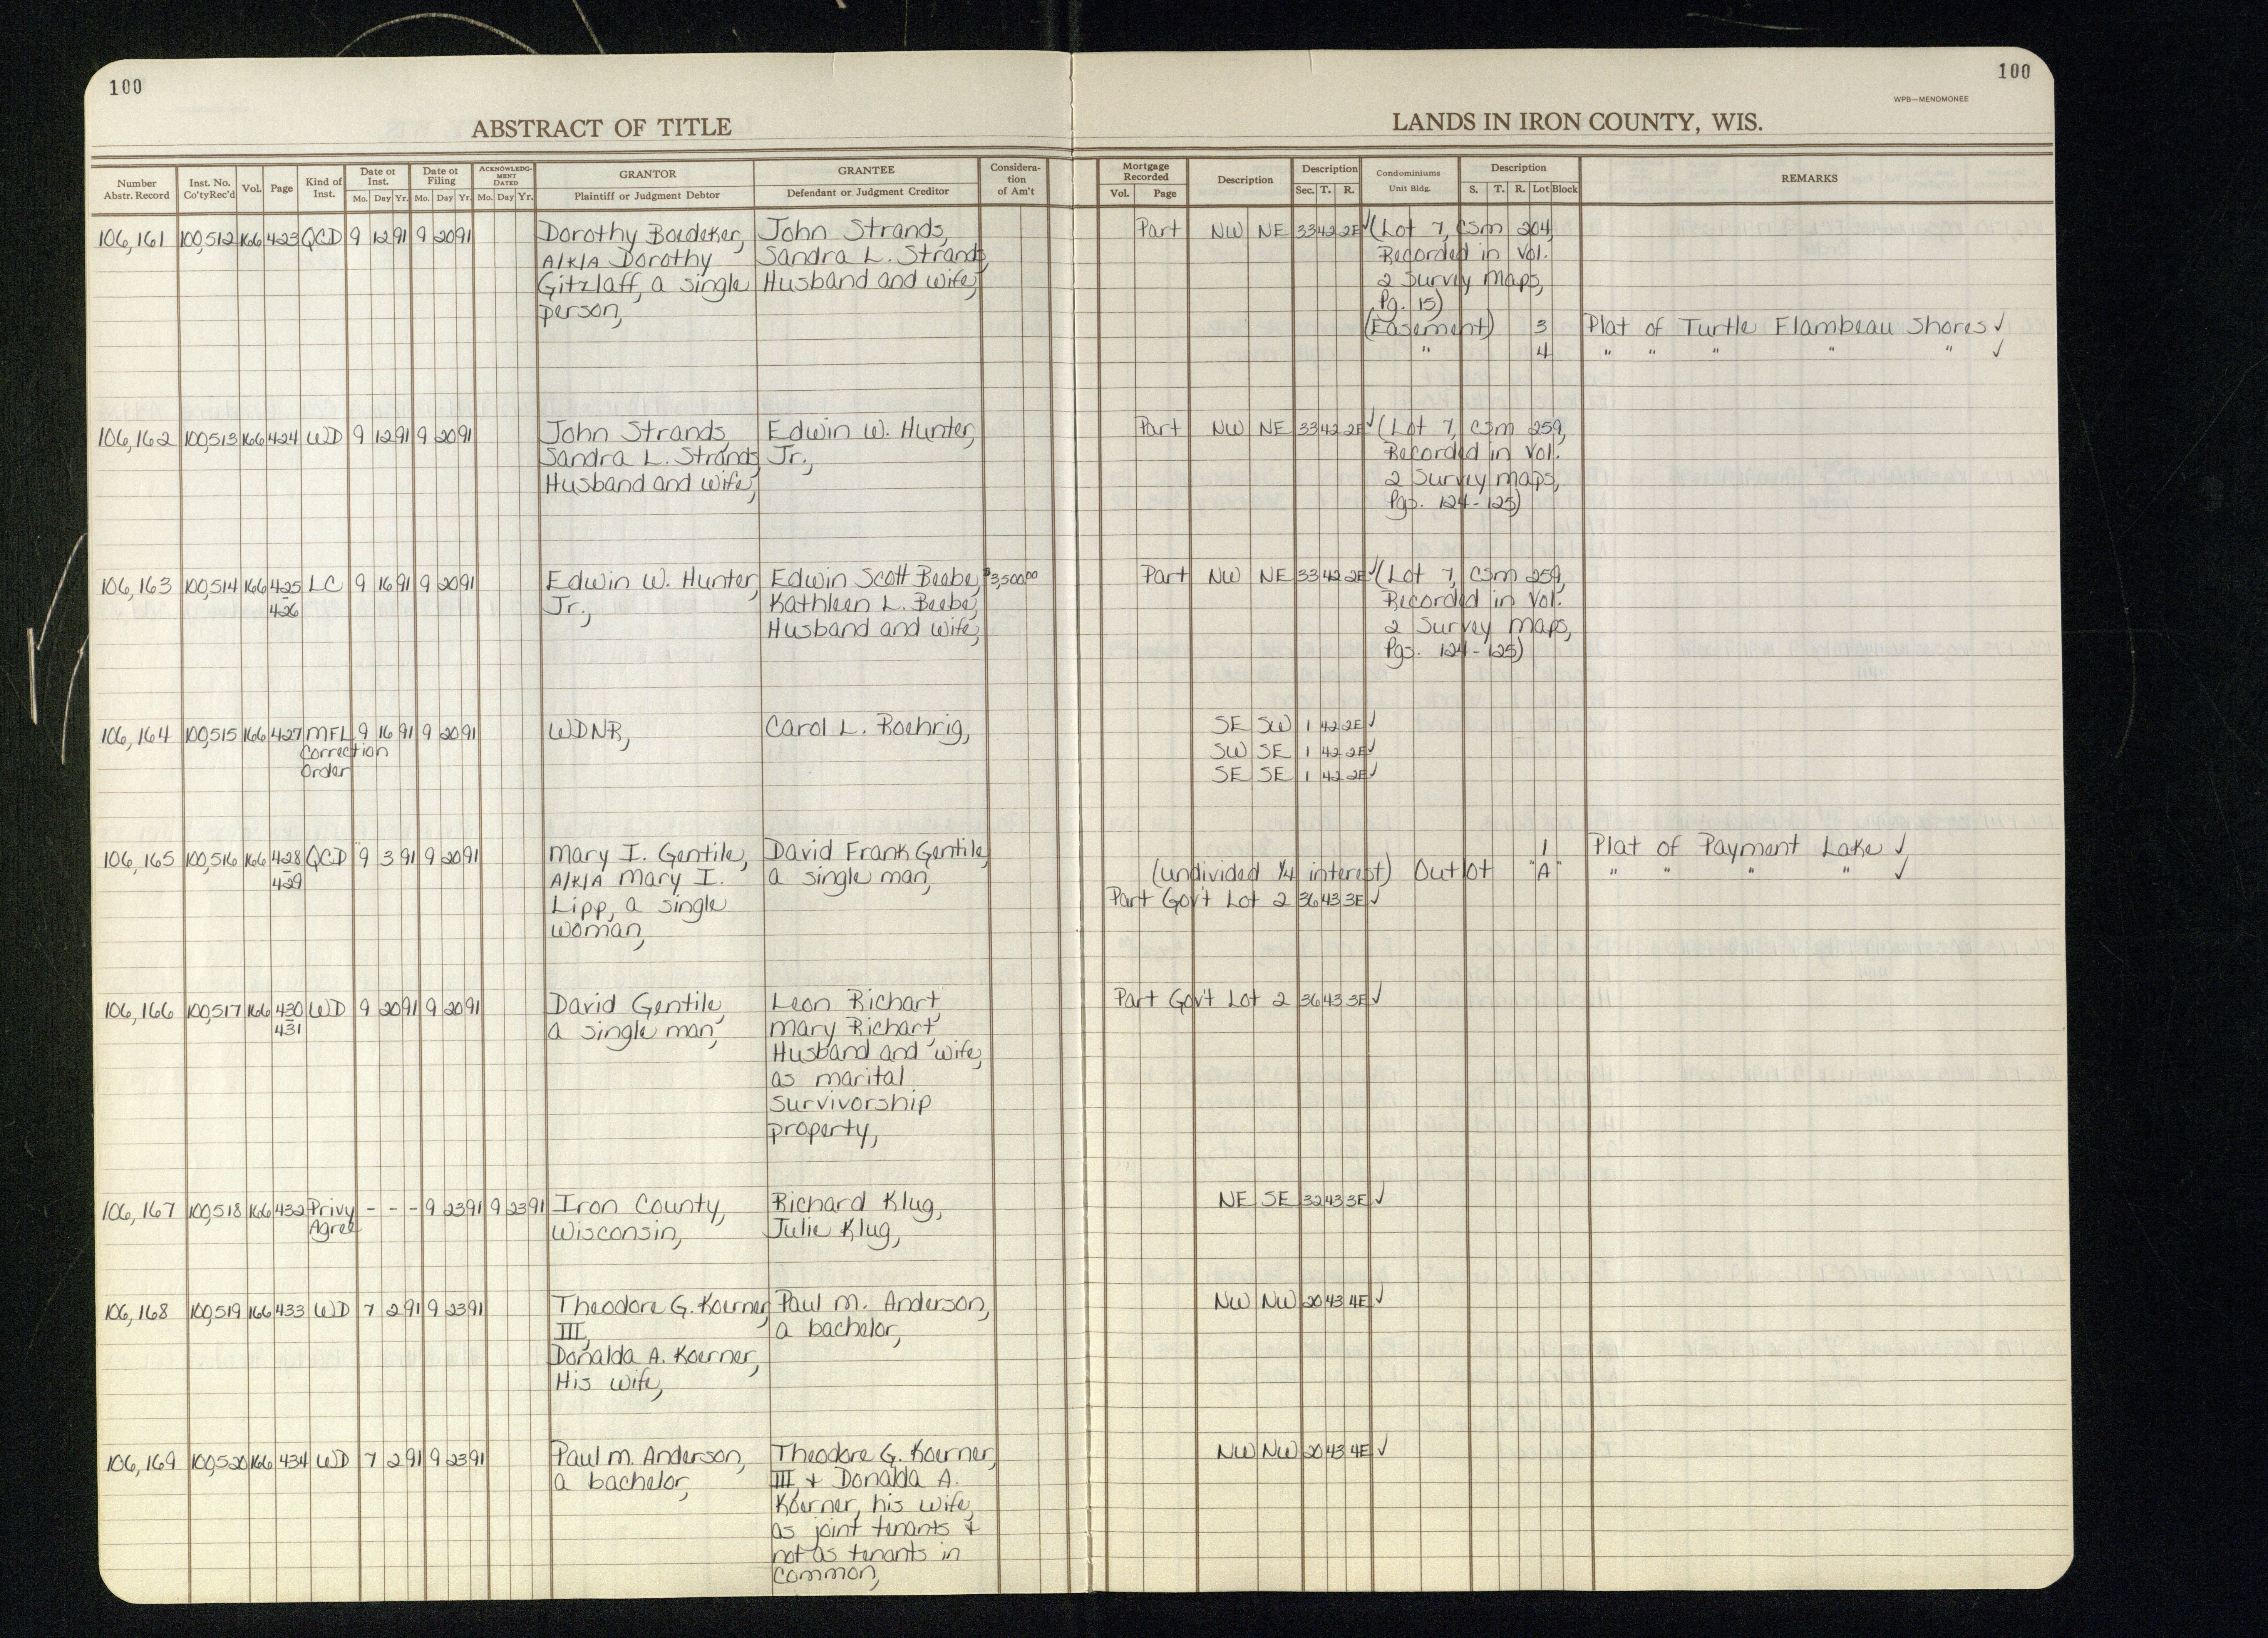 100
100
WPB—MENOMONEE
ABSTRACT OF TITLE
LANDS IN IRON COUNTY, WIS.
Number Abstr. Record
Inst. No. Co'tyRec'd
Vol.
Page
Kind of Inst.
Date of Inst.
Mo. Day Yr.
Date of Filing
Mo. Day Yr.
ACKNOWLEDG-MENT DATED
Mo. Day Yr.
GRANTOR
Plaintiff or Judgment Debtor
GRANTEE
Defendant or Judgment Creditor
Considera-tion of Am't
Mortgage Recorded
Vol. Page
Description
Description
Sec. T. R.
Condominiums
Unit Bldg.
Description
S. T. R. Lot Block
REMARKS
106,161 100,512 166 423 QCD 9 12 91 9 20 91 Dorothy Boedeker, John Strands, Part NW NE 33 42 2E ✓ (Lot 7, CSM 204,
A/K/A Dorothy Sandra L. Strands, Recorded in Vol.
Gitzlaff, a single Husband and wife, 2 Survey Maps,
person, Pg. 15)
(Easement) 3 Plat of Turtle Flambeau Shores ✓
" 4 " " " " " ✓
106,162 100,513 166 424 WD 9 12 91 9 20 91 John Strands, Edwin W. Hunter, Part NW NE 33 42 2E ✓ (Lot 7, CSM 259,
Sandra L. Strands, Jr., Recorded in Vol.
Husband and wife, 2 Survey Maps,
Pgs. 124-125)
106,163 100,514 166 425 - 426 LC 9 16 91 9 20 91 Edwin W. Hunter, Edwin Scott Beebe, $3,500.00 Part NW NE 33 42 2E ✓ (Lot 7, CSM 259,
Jr., Kathleen L. Beebe, Recorded in Vol.
Husband and wife, 2 Survey Maps,
Pgs. 124-125)
106,164 100,515 166 427 MFL 9 16 91 9 20 91 WDNR, Carol L. Roehrig, SE SW 1 42 2E ✓
Correction SW SE 1 42 2E ✓
Order SE SE 1 42 2E ✓
106,165 100,516 166 428 - 429 QCD 9 3 91 9 20 91 Mary I. Gentile, David Frank Gentile, 1 Plat of Payment Lake ✓
A/K/A Mary I. a single man, (undivided 1/4 interest) Outlot "A" " " " " ✓
Lipp, a single Part Gov't Lot 2 36 43 3E ✓
woman,
106,166 100,517 166 430 - 431 WD 9 20 91 9 20 91 David Gentile, Leon Richart, Part Gov't Lot 2 36 43 3E ✓
a single man, Mary Richart,
Husband and wife,
as marital
survivorship
property,
106,167 100,518 166 432 Privy - - - 9 23 91 9 23 91 Iron County, Richard Klug, NE SE 32 43 3E ✓
Agree Wisconsin, Julie Klug,
106,168 100,519 166 433 WD 7 2 91 9 23 91 Theodore G. Koerner, Paul M. Anderson, NW NW 20 43 4E ✓
III, a bachelor,
Donalda A. Koerner,
His wife,
106,169 100,520 166 434 WD 7 2 91 9 23 91 Paul M. Anderson, Theodore G. Koerner, NW NW 20 43 4E ✓
a bachelor, III, + Donalda A.
Koerner, his wife,
as joint tenants +
not as tenants in
common,